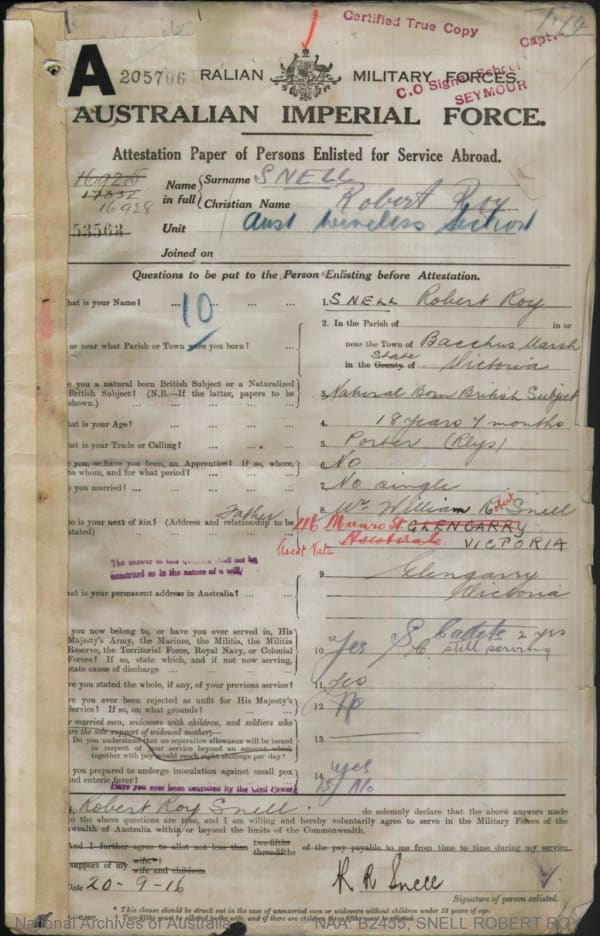 Certified True Copy
Capt.
C.O Signal School
SEYMOUR
A 205706 RALIAN MILITARY FORCES.
AUSTRALIAN IMPERIAL FORCE.
Attestation Paper of Persons Enlisted for Service Abroad.
16925
17332
16928
53563
Name in full { Surname SNELL
Christian Name Robert Roy
Unit Aust Wireless Section
Joined on
Questions to be put to the Person Enlisting before Attestation.
hat is your Name? ... 10 ... ... ... 1. SNELL Robert Roy
2. In the Parish of in or
or near what Parish or Town were you born? ... near the Town of Bacchus Marsh
in the County of State Victoria
e you a natural born British Subject or a Naturalized
British Subject? (N.B.—If the latter, papers to be
shown.) 3. Natural Born British Subject
hat is your Age? 4. 18 years 7 months
hat is your Trade or Calling? 5. Porter (Rlys)
e you, or have you been, an Apprentice? If so, where,
to whom, and for what period? 6. No
e you married? 7. No single
Father 8. Mr William Snell
ho is your next of kin? (Address and relationship to be
stated) 46 Munro St GLENGARRY
Ascot Vale VICTORIA
The answer to this question shall not be
construed as in the nature of a will.
hat is your permanent address in Australia? ... 9. Glengarry
Victoria
you now belong to, or have you ever served in, His
Majesty's Army, the Marines, the Militia, the Militia
Reserve, the Territorial Force, Royal Navy, or Colonial
Forces? If so, state which, and if not now serving,
state cause of discharge 10. Yes S/C Cadets 2 yrs
still serving
ve you stated the whole, if any, of your previous service? 11. Yes
ve you ever been rejected as unfit for His Majesty's
Service? If so, on what grounds? 12. No
r married men, widowers with children, and soldiers who
are the sole support of widowed mother)—
Do you understand that no separation allowance will be issued
in respect of your service beyond an amount which
together with pay would reach eight shillings per day? 13.
you prepared to undergo inoculation against small pox
and enteric fever? 14. Yes
Have you ever been convicted by the Civil Power? 15 No
Robert Roy Snell do solemnly declare that the above answers made
to the above questions are true, and I am willing and hereby voluntarily agree to serve in the Military Forces of the
wealth of Australia within or beyond the limits of the Commonwealth.
And I further agree to allot not less than two-fifths three-fifths of the pay payable to me from time to time during my service
support of my wife* wife and children.
Date 20-9-16 R R Snell
Signature of person enlisted.
* This clause should be struck out in the case of unmarried men or widowers without children under 18 years of age.
† Two-fifths must be allotted to the wife, and if there are children three-fifths must be allotted.
National Archives of Australia NAA: B2455, SNELL ROBERT ROY